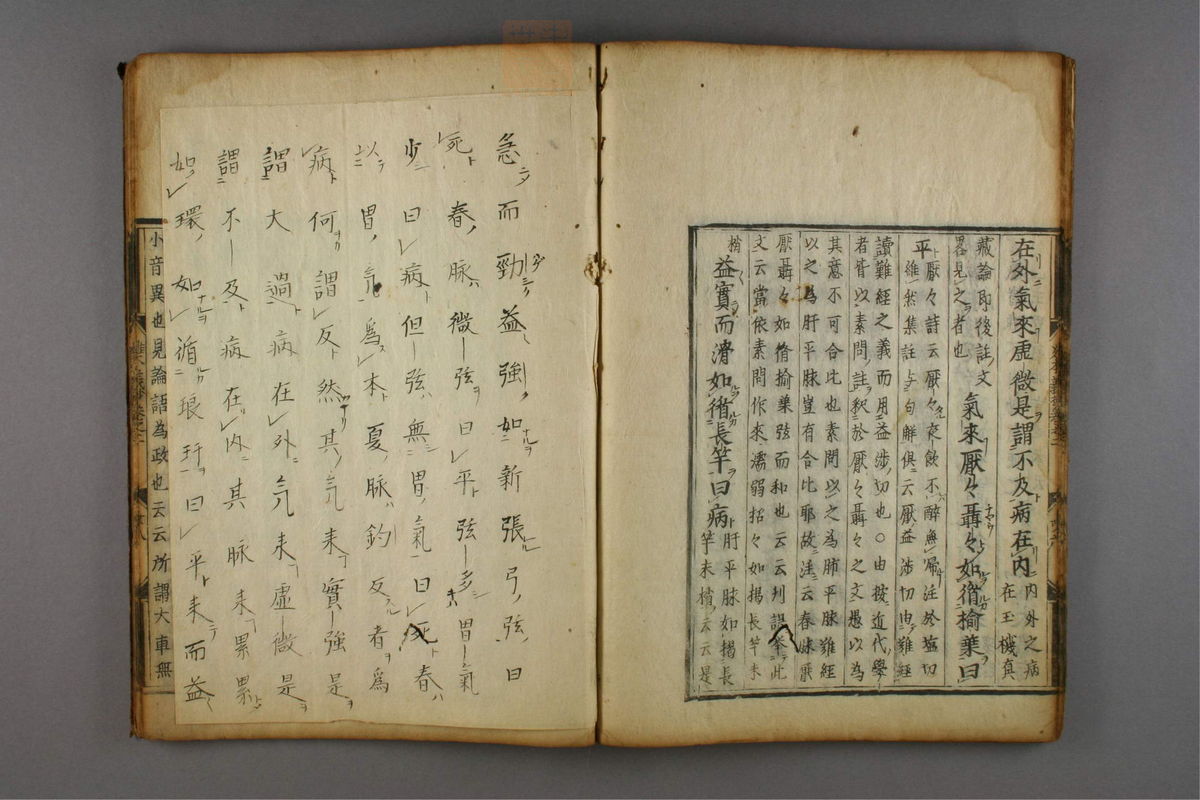 在外氣來虛微是謂不及病在內 內外之病在玉機真
藏論即後註文
畧見之者也 氣來厭々聶々如循榆葉曰
平 厭々詩云厭々夜飮不醉無歸注於塩切
維然集註上句解俱云厭益涉切由難經
讀難經之義而用益涉切也○由按近代學
者皆以素問註釈於厭々聶々之文愚以為
其意不可合此也素問以之為肺平脉難經
以之為肝平脉豈有合比耶故注云春脉厭
厭聶々如循揄葉弦而和也云云刊誤此
文云當依素問作來濡弱招々如揭長竿末
梢 益實而滑如循長竿曰病 肝平脉如揭長
竿末梢云云是
急而勁益強如新張弓弦曰
死春脉微弦曰平弦多胃氣
少曰病但弦無胃氣曰死春
以胃气為本夏脉鈎反者為
病何謂反然其气来實強是
謂大過病在外气来虛微是
謂不及病在内其脉来累累
如環如循琅玕曰平来而益
小音異也見論語為政也云云所謂大車無